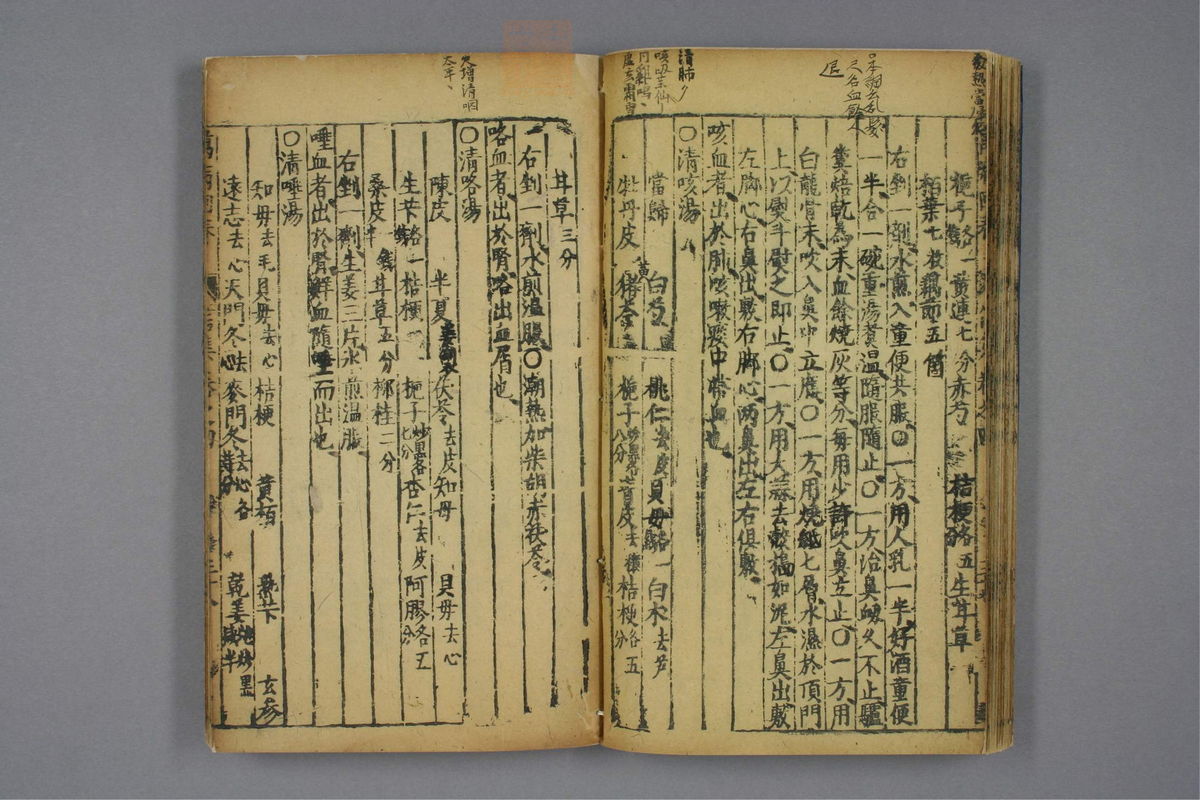 梔子各一錢黃連七分赤芍 桔梗各五分生甘草
栢葉七枚藕節五箇
右剉一劑水煎入童便共服○一方用人乳一半好酒童便
一半合一碗重湯煑温隨服隨止○一方治鼻衂久不止驢
糞焙乾為末血餘燒灰等分每用少許吹鼻立止○一方用
白龍骨末吹入鼻中立應○一方用燒紙七層水濕於頂門
上以熨斗熨之即止○一方用大蒜去殼搗如泥左鼻出敷
左脚心右鼻出敷右脚心兩鼻出左右俱敷
咳血者出於肺咳嗽痰中帶血也
○清咳湯
當歸 白芍 桃仁去皮貝母各一錢白朮去芦
牡丹皮 黃芩 梔子炒黑各八分青皮去穰桔梗各五分
甘草三分
右剉一劑水煎温服○潮熱加柴胡赤茯苓
咯血者出於腎咯出血屑也
○清咯湯
陳皮 半夏姜製茯苓去皮知母 貝母去心
生芐各一錢桔梗 梔子炒黑各七分杏仁去皮阿膠各五分
桑皮錢半甘草五分柳桂二分
右剉一劑生姜三片水煎温服
唾血者出於腎鮮血隨唾而出也
○清唾湯
知母去毛貝母去心桔梗 黃栢 熟芐 玄參
遠志去心天門冬去心麥門冬去心各等分 乾姜炒黑減半
清肺
日本詞云乱髮
又名血餘